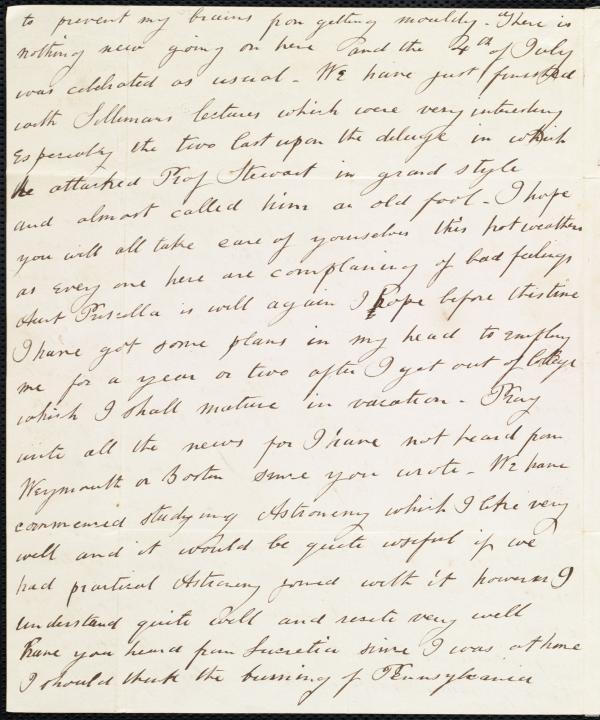 to prevent my brains from getting mouldy. There is
nothing new going on here and the 4th of July
was celebrated as usual. We have just finished
with Sillimans lectures which were very interesting
Especially the two last upon the deluge in which
he attacked Prof Stewart in grand style
and almost called him an old fool. I hope
you will all take care of yourselves this hot weather
as every one here are complaining of bad feelings
Aunt Priscilla is well again I hope before this time
I have got some plans in my head to employ
me for a year or two after I get out of College
which I shall mature in vacation. Pray
write all the news for I have not heard from
Weymouth or Boston since you wrote. We have
commenced studying Astronomy which I like very
well and it would be quite useful if we
had practical Astronomy joined with it however I
understand quite well and recite very well
have you heard from Lucretia since I was at home
I should think the burning of Pennsylvania